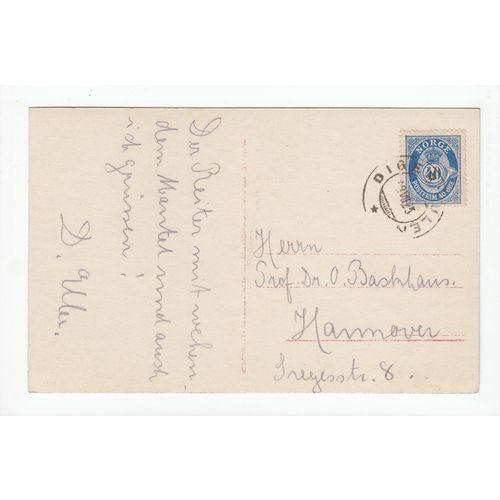 Der Reiter mit wehen-
dem Mantel und auch
ich grüssen!
D. Uller.
NORGE
20
POSTFRIM 40 ØRE
DIG
Herrn
Prof. Dr. O. Baschhaus.
Hannover
8.